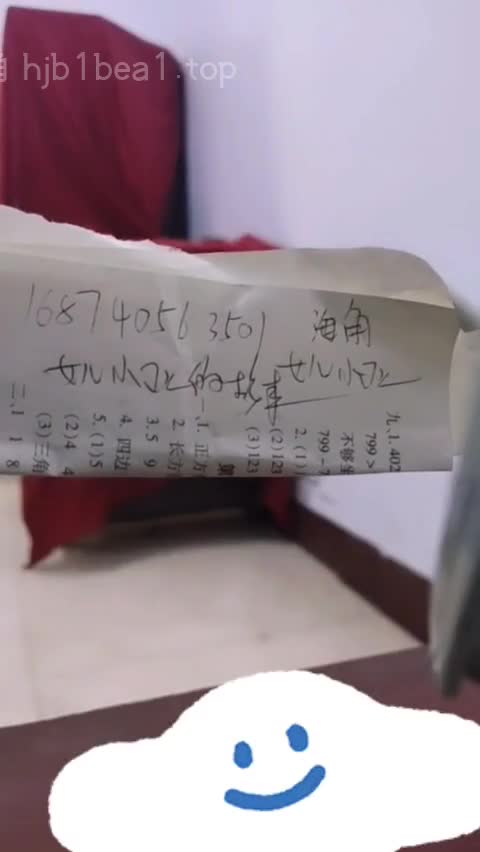 hjb1bea1.top
16874056 3501 海角
女儿小卫的故事 女儿小卫
九.1.402
799>
不够
2.(1)
799-
(2)123
(3)123
第
一.1.正方
2.长方
3.5 9
4.四边
5.(1)5
(2)4 4
(3)三角
二.1 1 8